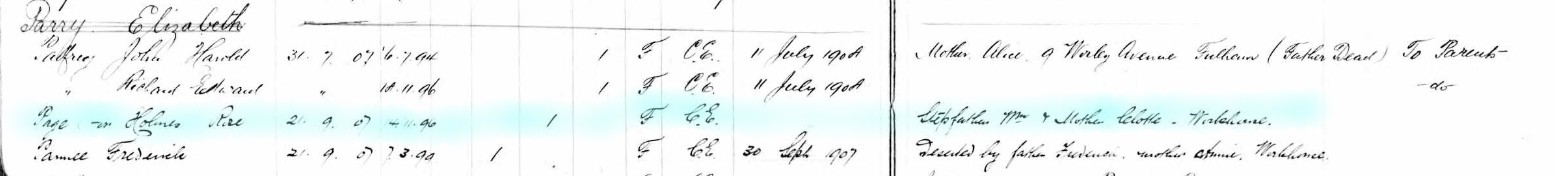 Parry Elizabeth
John Harold 31. 7. 07 6.7.94 1 F C.E. 11 July 1908 Mother Alice, 9 Avenue Fulham (Father Dead) To Parents
" Richard Edward " 18.11.96 1 F C.E. 11 July 1908 - do
Page - or Holmes 21. 9. 07 1 F C.E. Stepfather Wm & Mother - Workhouse.
Frederick 21. 9. 07 7.3.99 1 F C.E. 30 Sept 1907 Deserted by father Frederick, mother Annie, Workhouse.